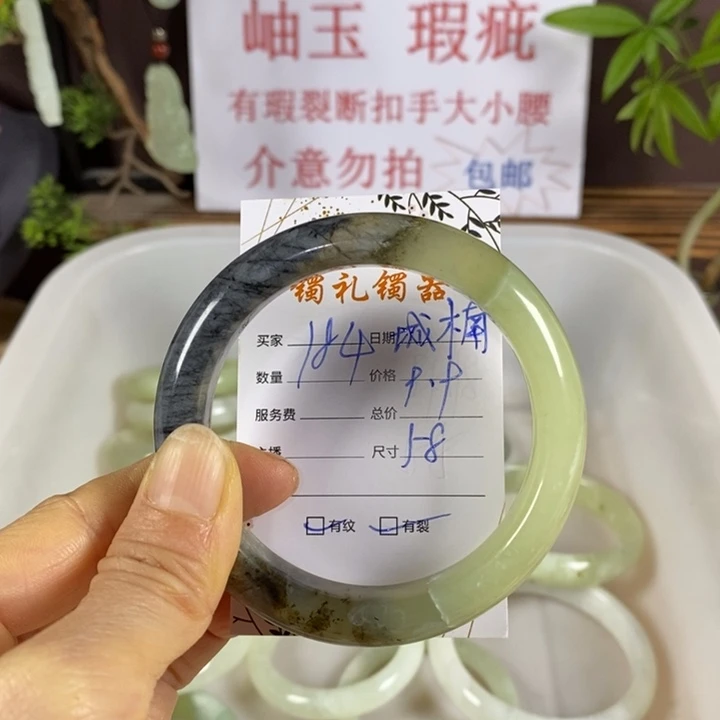 岫玉 瑕疵
有瑕裂断扣手大小腰
介意勿拍 包邮
镯礼镯器
买家 184 日期 城楠
数量 价格 9.9
服务费 总价
主播 尺寸 58
有纹 有裂